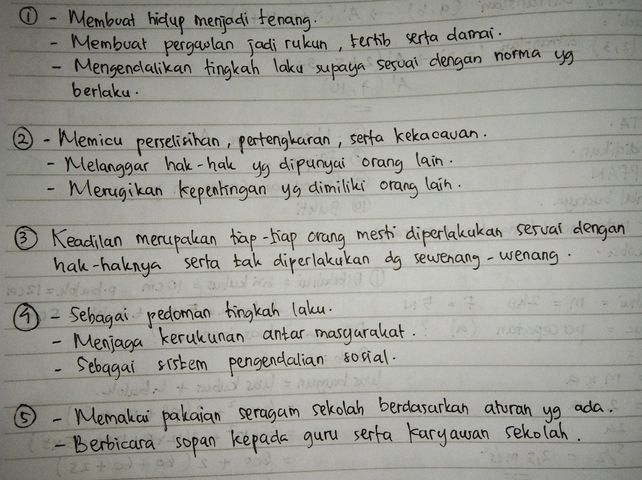 ① - Membuat hidup menjadi tenang.
- Membuat pergaulan jadi rukun, tertib serta damai.
- Mengendalikan tingkah laku supaya sesuai dengan norma yg
berlaku.
② - Memicu perselisihan, pertengkaran, serta kekacauan.
- Melanggar hak-hak yg dipunyai orang lain.
- Merugikan kepentingan yg dimiliki orang lain.
③ Keadilan merupakan tiap-tiap orang mesti diperlakukan sesuai dengan
hak-haknya serta tak diperlakukan dg sewenang-wenang.
④ - Sebagai pedoman tingkah laku.
- Menjaga kerukunan antar masyarakat.
- Sebagai sistem pengendalian sosial.
⑤ - Memakai pakaian seragam sekolah berdasarkan aturan yg ada.
- Berbicara sopan kepada guru serta karyawan sekolah.